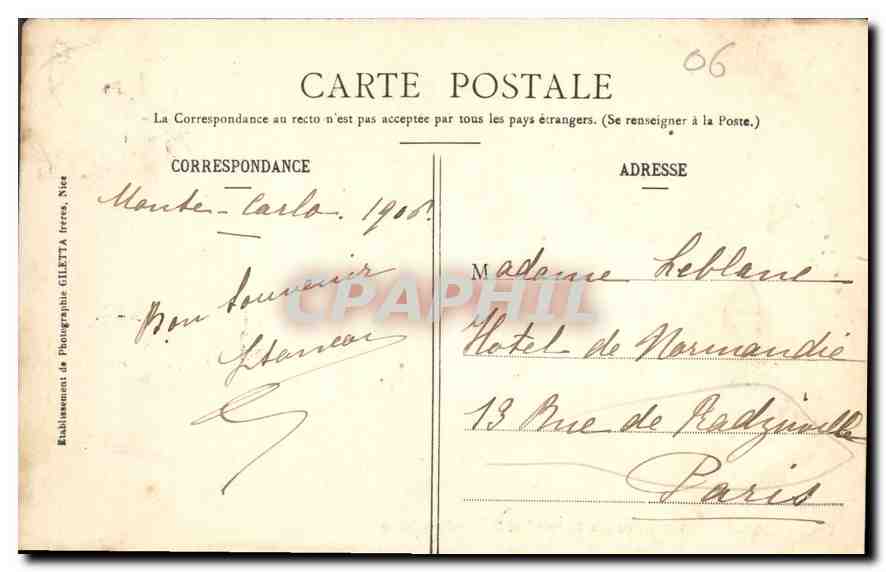 06
CARTE POSTALE
La Correspondance au recto n'est pas acceptée par tous les pays étrangers. (Se renseigner à la Poste.)
CORRESPONDANCE
Monte-Carlo. 1906.
Bon souvenir
ADRESSE
Madame Leblanc
Hotel de Normandie
13 Rue de Radziwille
Paris
Etablissement de Photographie GILETTA frères, Nice
CPAPHIL